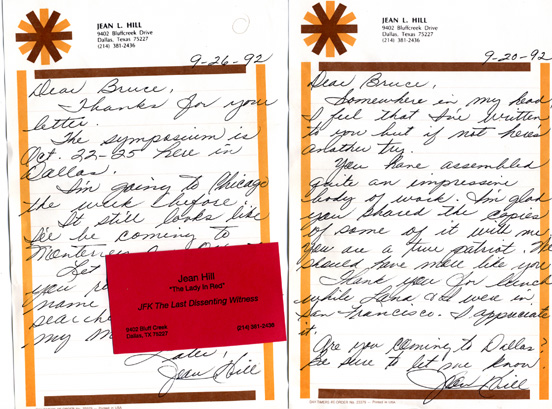 JEAN L. HILL
9402 Bluffcreek Drive
Dallas, Texas 75227
(214) 381-2436
9-26-92
Dear Bruce,
Thanks for your
letter.
The symposium is
Oct. 22-25 here in
Dallas.
I'm going to Chicago
the week before.
It still looks like
I'll be coming to
Let
you
name
searche
my
Later,
Jean Hill
Jean Hill
"The Lady in Red"
JFK The Last Dissenting Witness
9402 Bluff Creek
Dallas, TX 75227
(214) 381-2436
JEAN L. HILL
9402 Bluffcreek Drive
Dallas, Texas 75227
(214) 381-2436
9-20-92
Dear Bruce,
Somewhere in my head
I feel that I've written
to you but if not here's
another try.
You have assembled
quite an impressive
body of work. I'm glad
you shared the copies
of some of it with me.
You are a true patriot. We
should have more like you.
Thank you for lunch
while Lana and I were in
San Francisco. I appreciate
it.
Are you coming to Dallas?
Be sure to let me know.
Jean Hill